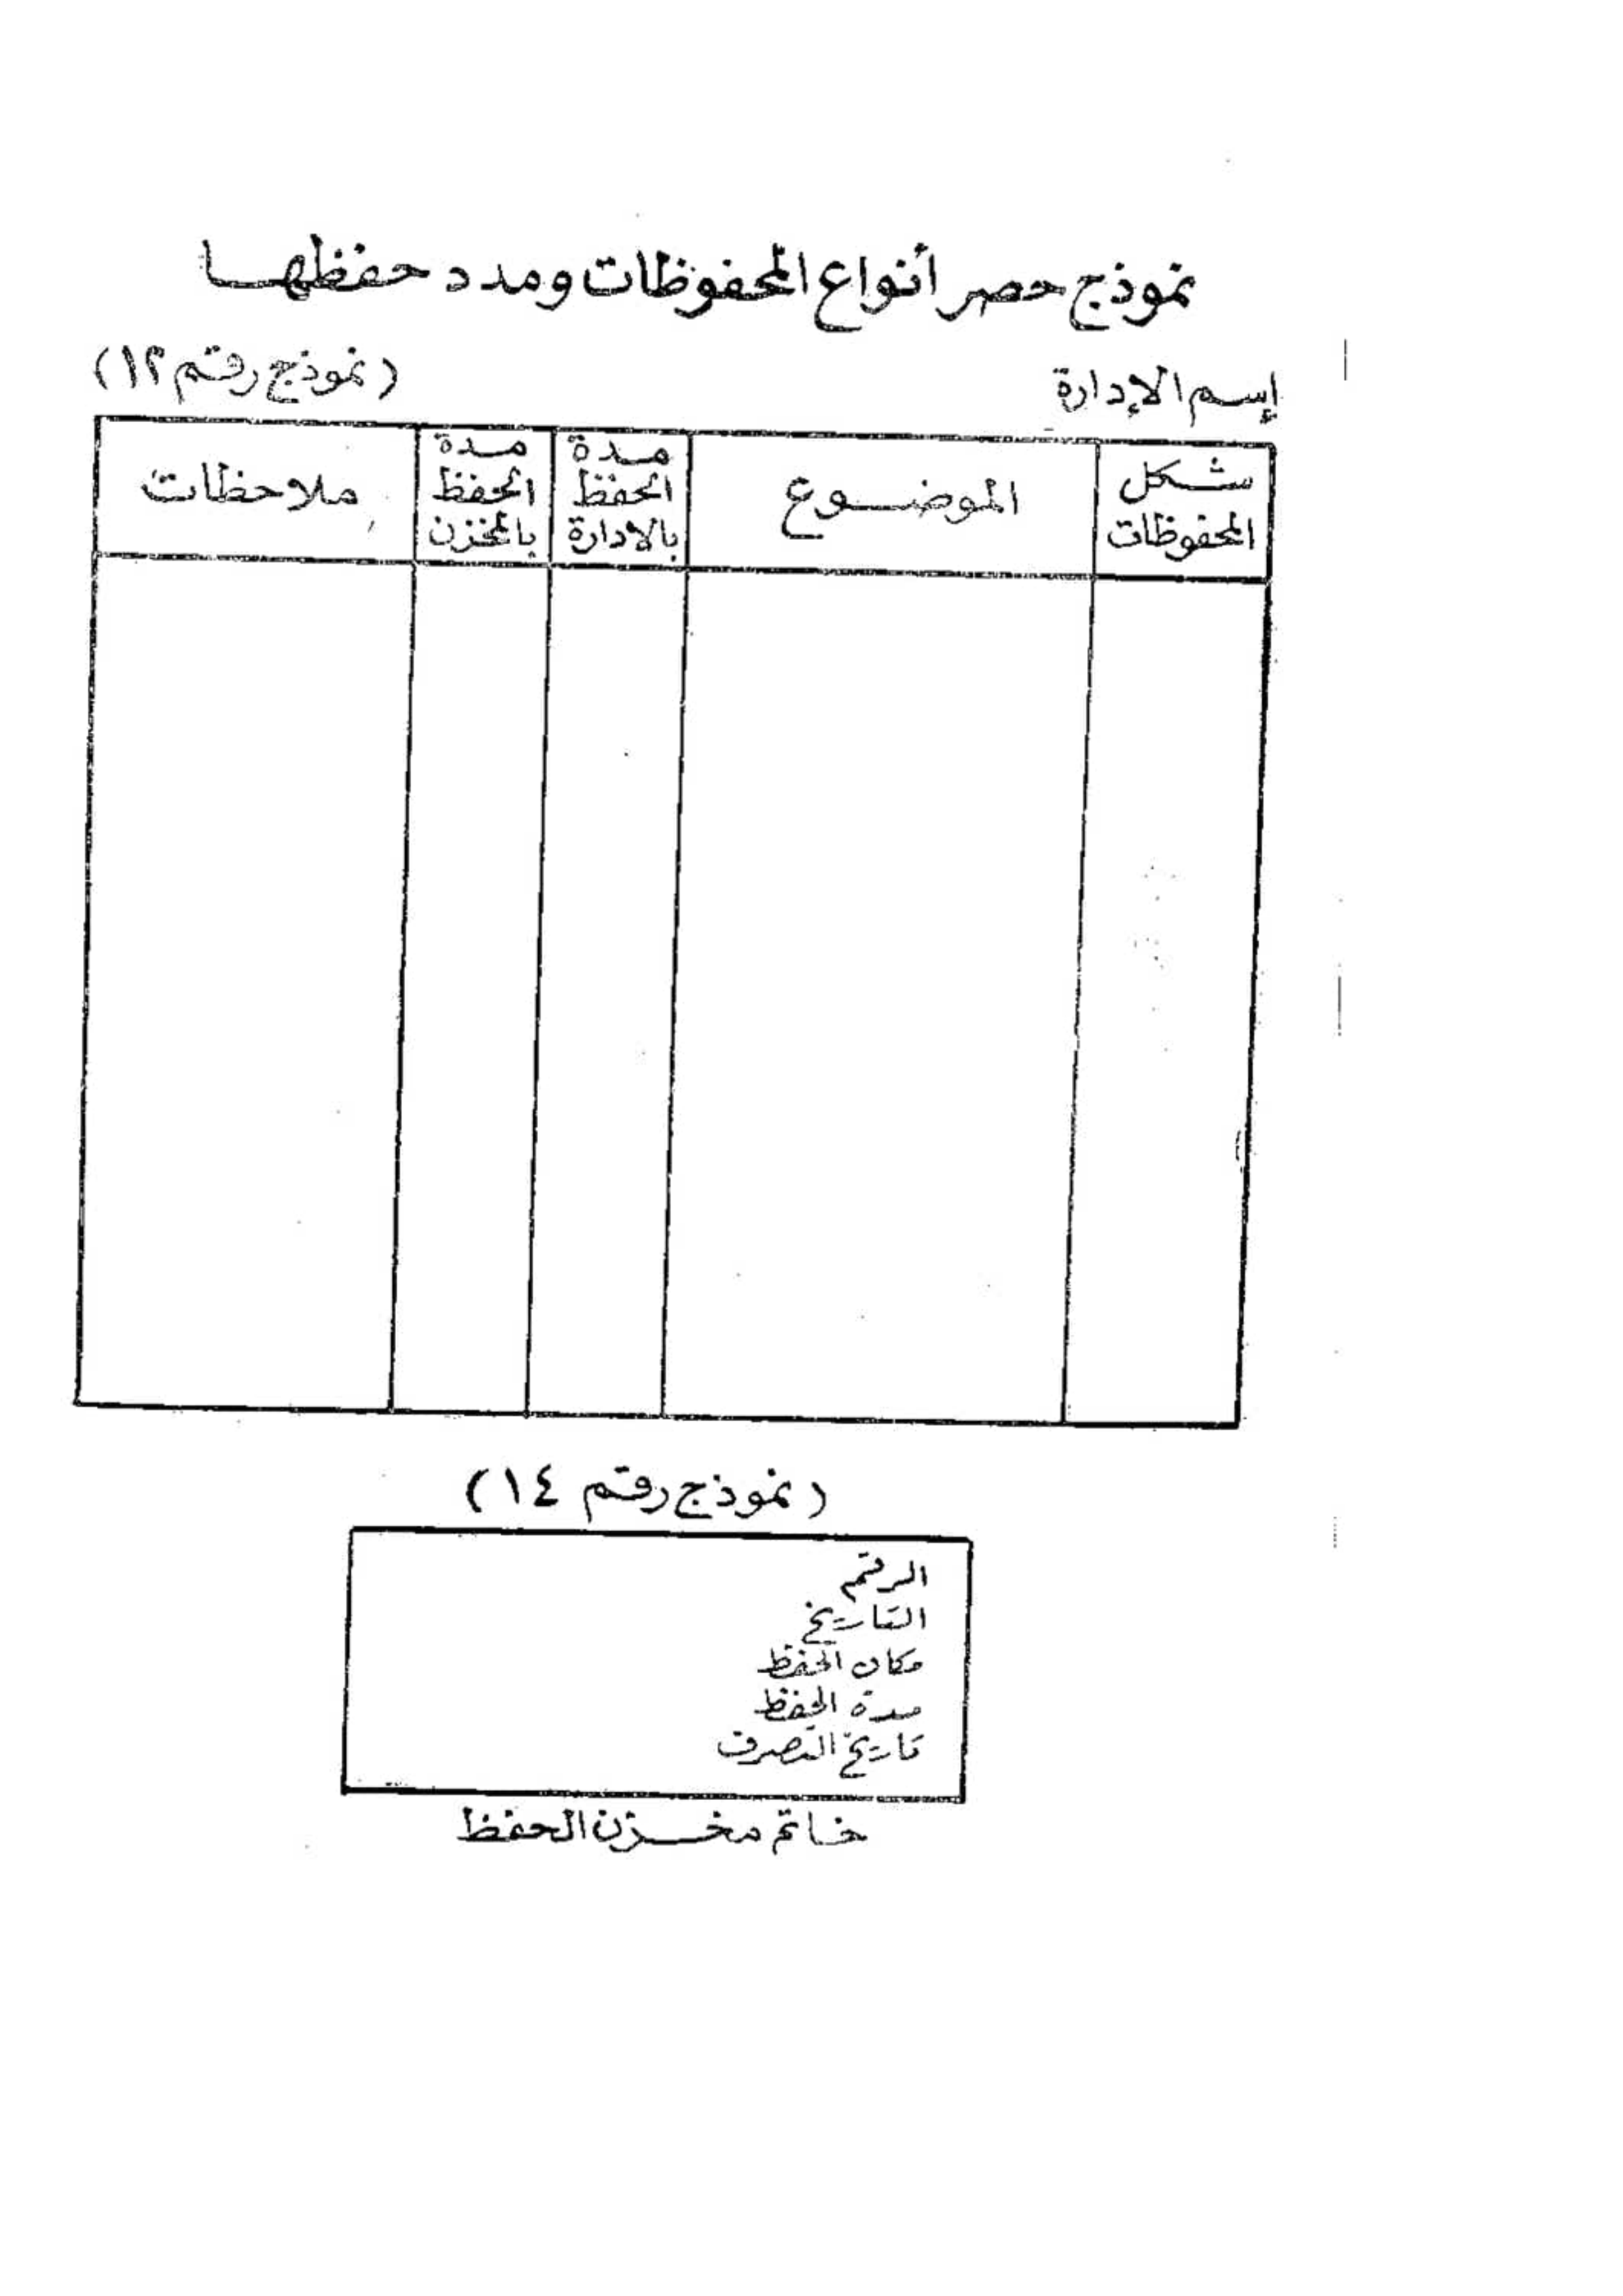 نموذج حصر أنواع المحفوظات ومدد حفظها
إسم الإدارة
(نموذج رقم ١٢)
شكل المحفوظات
الموضوع
مدة الحفظ بالادارة
مدة الحفظ بالمخزن
ملاحظات
(نموذج رقم ١٤)
الرقم
التاريخ
مكان الحفظ
مدة الحفظ
تاريخ التصرف
خاتم مخزن الحفظ